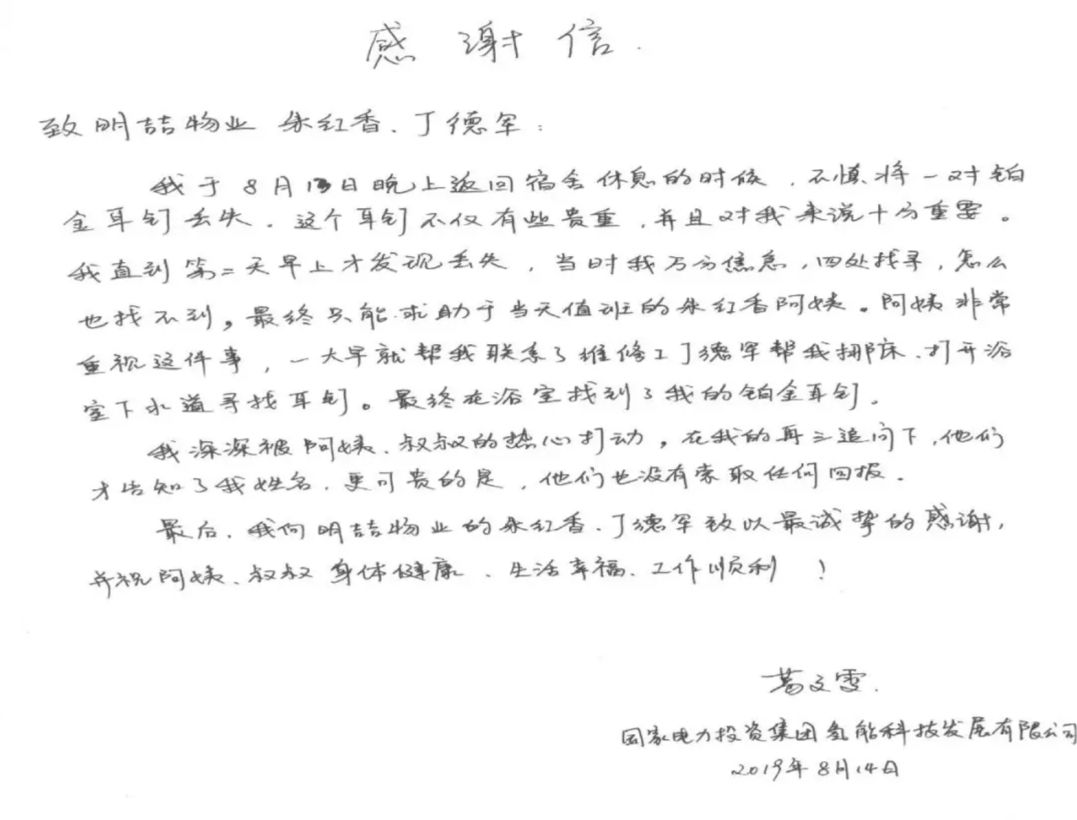 感谢信.
致明喆物业 朱红香、丁德军:
我于8月13日晚上返回宿舍休息的时候,不慎将一对铂
金耳钉丢失。这个耳钉不仅有些贵重,并且对我来说十分重要。
我直到第二天早上才发现丢失,当时我万分焦急,四处找寻,怎么
也找不到,最终只能求助于当天值班的朱红香阿姨。阿姨非常
重视这件事,一大早就帮我联系了维修工丁德军帮我挪床、打开浴
室下水道寻找耳钉。最终在浴室找到了我的铂金耳钉。
我深深被阿姨、叔叔的热心打动,在我的再三追问下,他们
才告知了我姓名,更可贵的是,他们也没有索取任何回报。
最后,我向明喆物业的朱红香、丁德军致以最诚挚的感谢,
并祝阿姨、叔叔身体健康、生活幸福、工作顺利!
葛文雯.
国家电力投资集团氢能科技发展有限公司
2019年8月14日